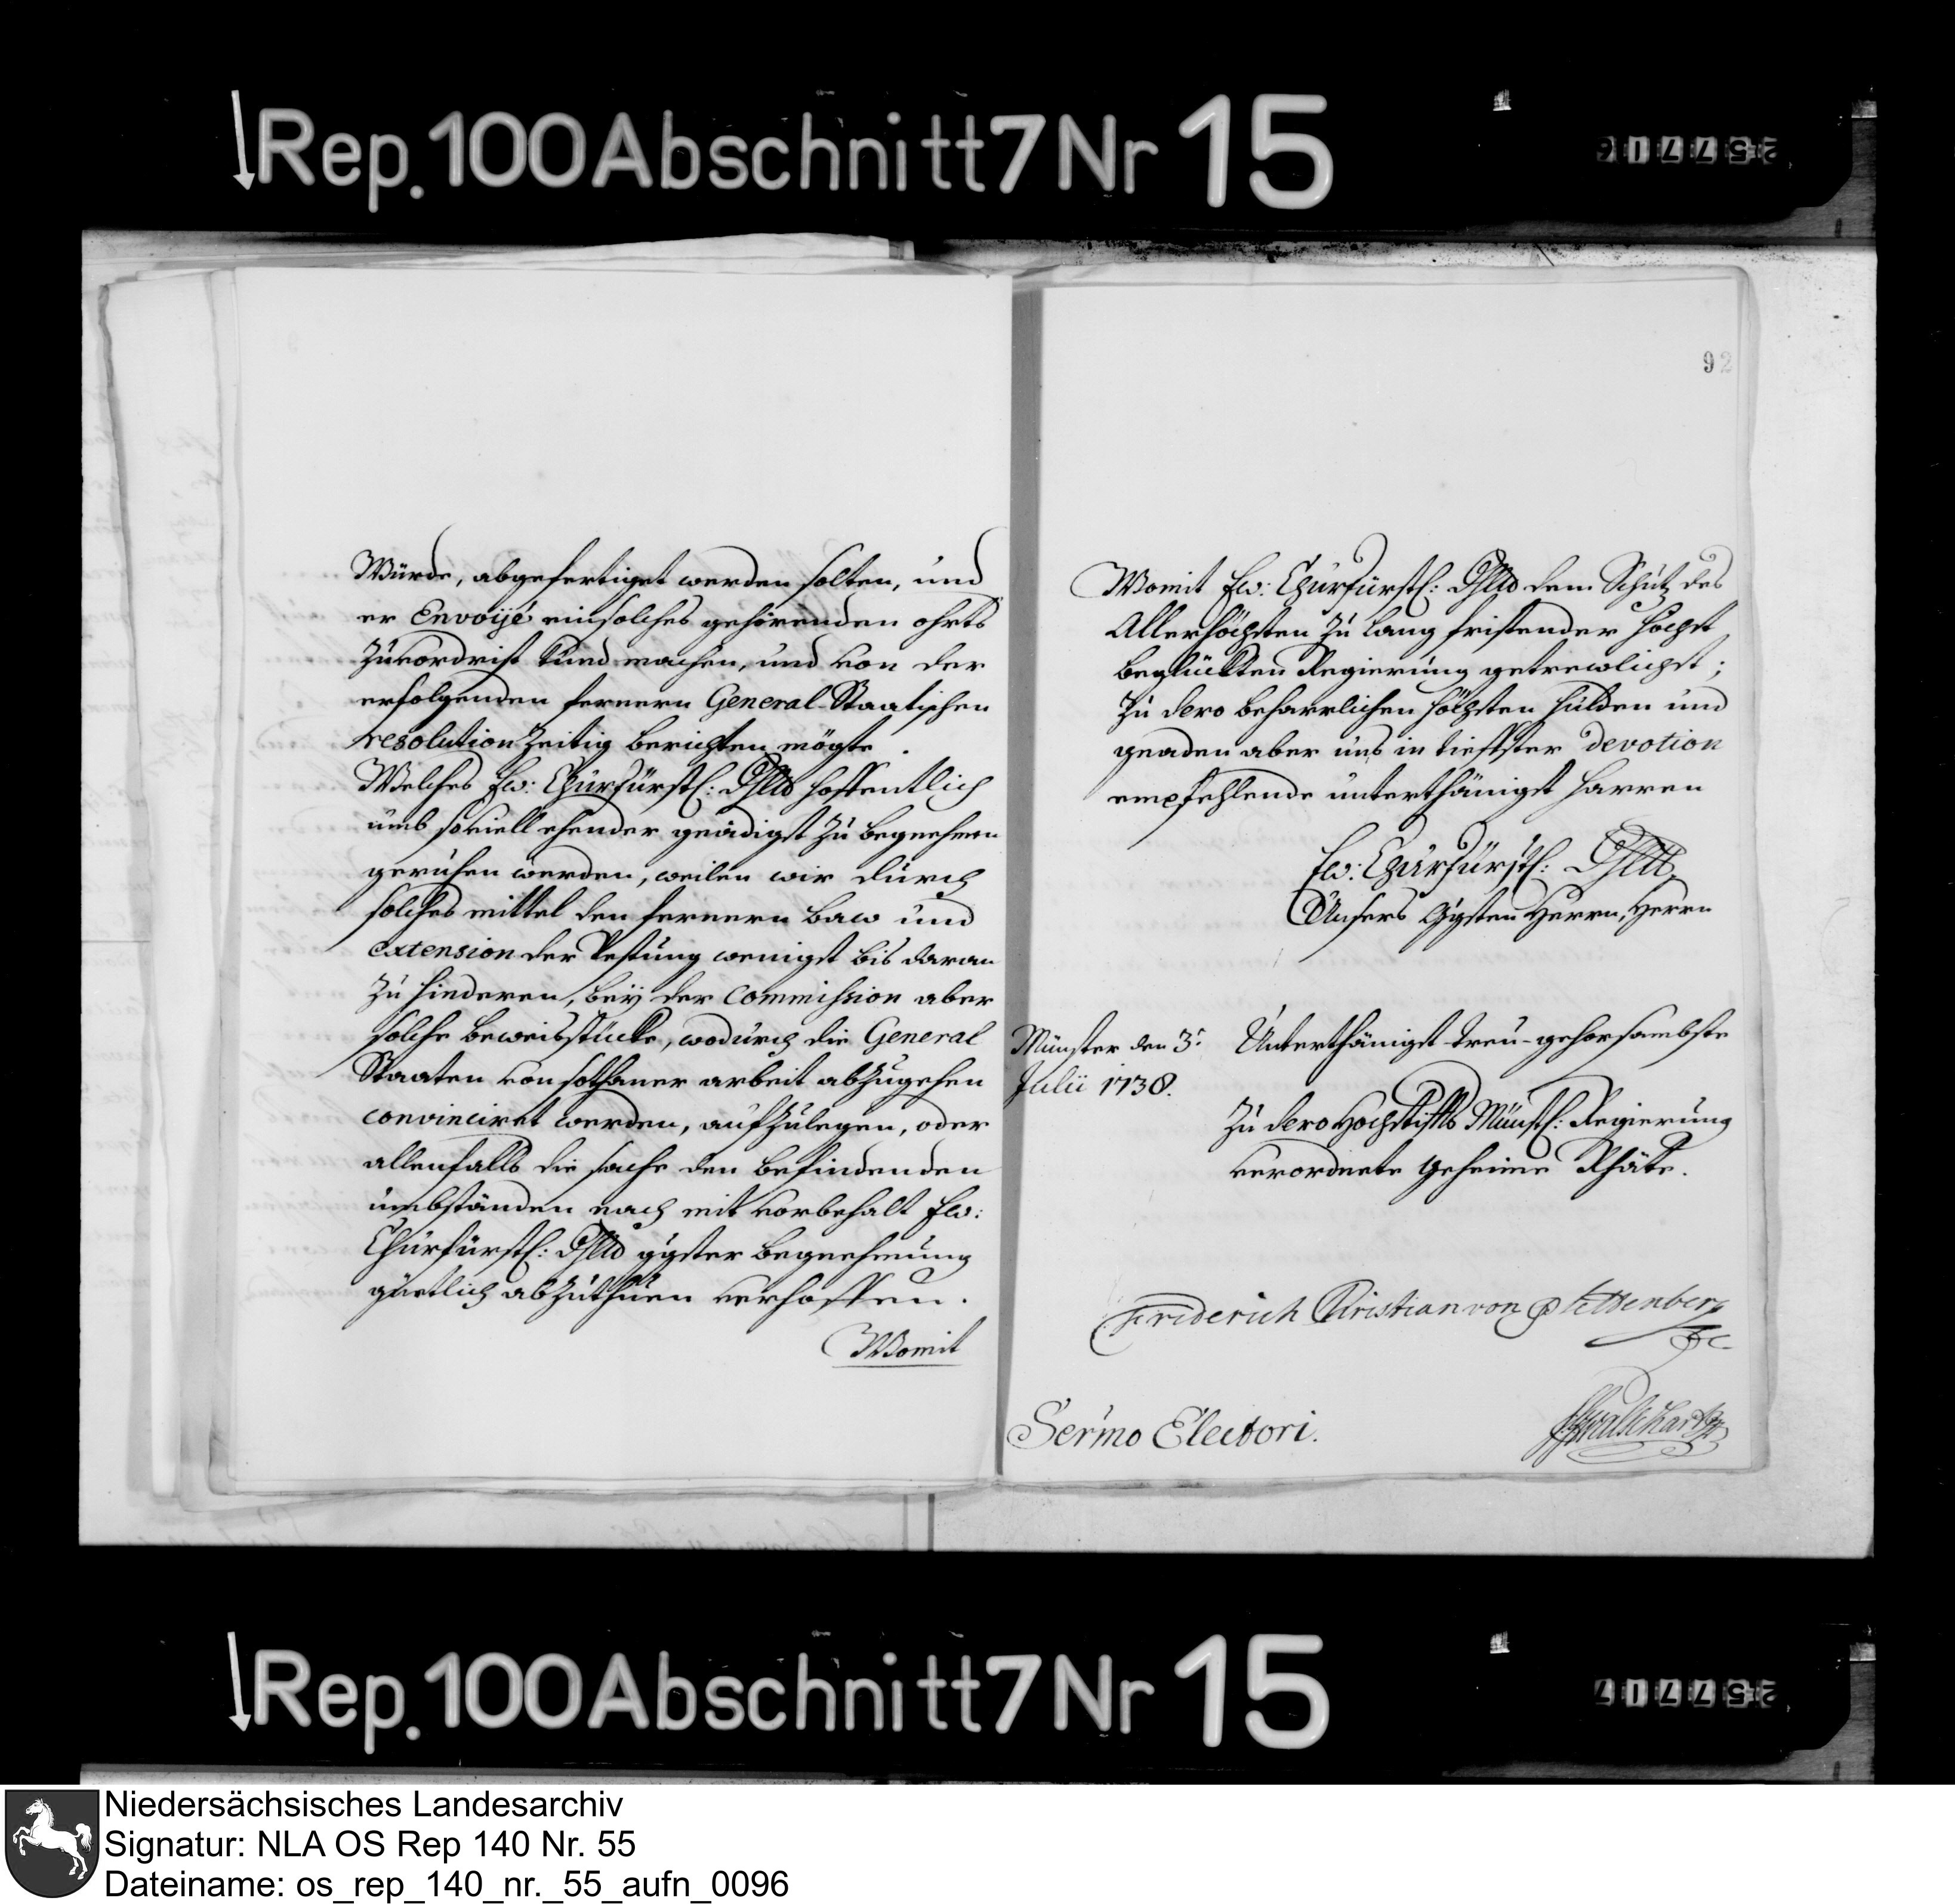 Rep. 100 Abschnitt 7 Nr 15
92
Würde, abgefertiget werden solten, und
er Envoijé ein solches gehörenden ohrts
zuvordrist kund machen, und von der
erfolgenden fernern General-Staatischen
resolution zeitig berichten mögte.
Welches Ew: Churfürstl: Dhltt hoffentlich
umb soviell ehender gnädigst zu begnehmen
geruhen werden, weilen wir durch
solches mittel den fernern baw und
extension der Vestung wenigst bis daran
zu hinderen, beÿ der Commission aber
solche beweisstücke, wodurch die General
Staaten von sothaner arbeit abzugehen
convinciret werden, aufzulegen, oder
allenfalls die sache den befindenden
umbständen nach mit vorbehalt Ew:
Churfürstl: Dhltt ggster begnehmung
güetlich abzuthuen verhoffen.
Womit
Womit Ew: Churfürstl: Dhltt dem Schutz des
Allerhöchsten zu lang fristender höchst
beglückten Regierung getrewlichst;
zu dero beharrlichen höchsten hulden und
gnaden aber uns in tieffster devotion
empfehlende unterthänigst harren
Ew: Churfürstl: Dhltt
Unsers Ggsten Herrn, Herrn
Münster den 3t
Julii 1738.
Unterthänigst-treu-gehorsambste
zu dero Hochstiffts Münstl: Regierung
verordnete geheime Rhäte.
Friderich Christian von Plettenberg
Sermo Electori.
Rep. 100 Abschnitt 7 Nr 15
Niedersächsisches Landesarchiv
Signatur: NLA OS Rep 140 Nr. 55
Dateiname: os_rep_140_nr._55_aufn_0096